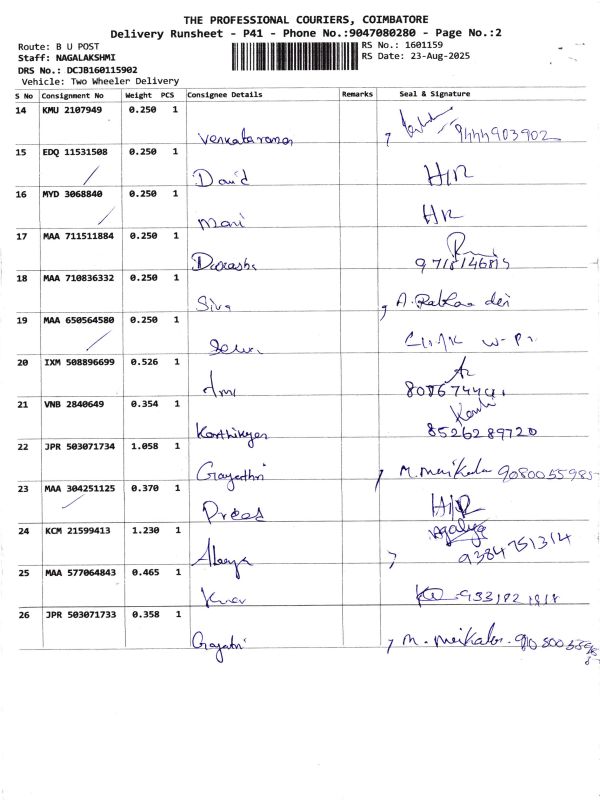 THE PROFESSIONAL COURIERS, COIMBATORE
Delivery Runsheet - P41 - Phone No.:9047080280 - Page No.:2
Route: B U POST
Staff: NAGALAKSHMI
DRS No.: DCJB160115902
Vehicle: Two Wheeler Delivery
RS No.: 1601159
RS Date: 23-Aug-2025
S No Consignment No Weight PCS Consignee Details Remarks Seal & Signature
14 KMU 2107949 0.250 1
Venkataraman 9444903902
15 EDQ 11531508 0.250 1
David H/R
16 MYD 3068840 0.250 1
Mani HR
17 MAA 711511884 0.250 1
18 MAA 710836332 0.250 1
Siva A.
19 MAA 650564580 0.250 1
20 IXM 508896699 0.526 1
21 VNB 2840649 0.354 1
Karthikyen 8526289720
22 JPR 503071734 1.058 1
Gayathri M. 9080055985
23 MAA 304251125 0.370 1
H/R
24 KCM 21599413 1.230 1
9384751314
25 MAA 577064843 0.465 1
26 JPR 503071733 0.358 1
Gayatri M.